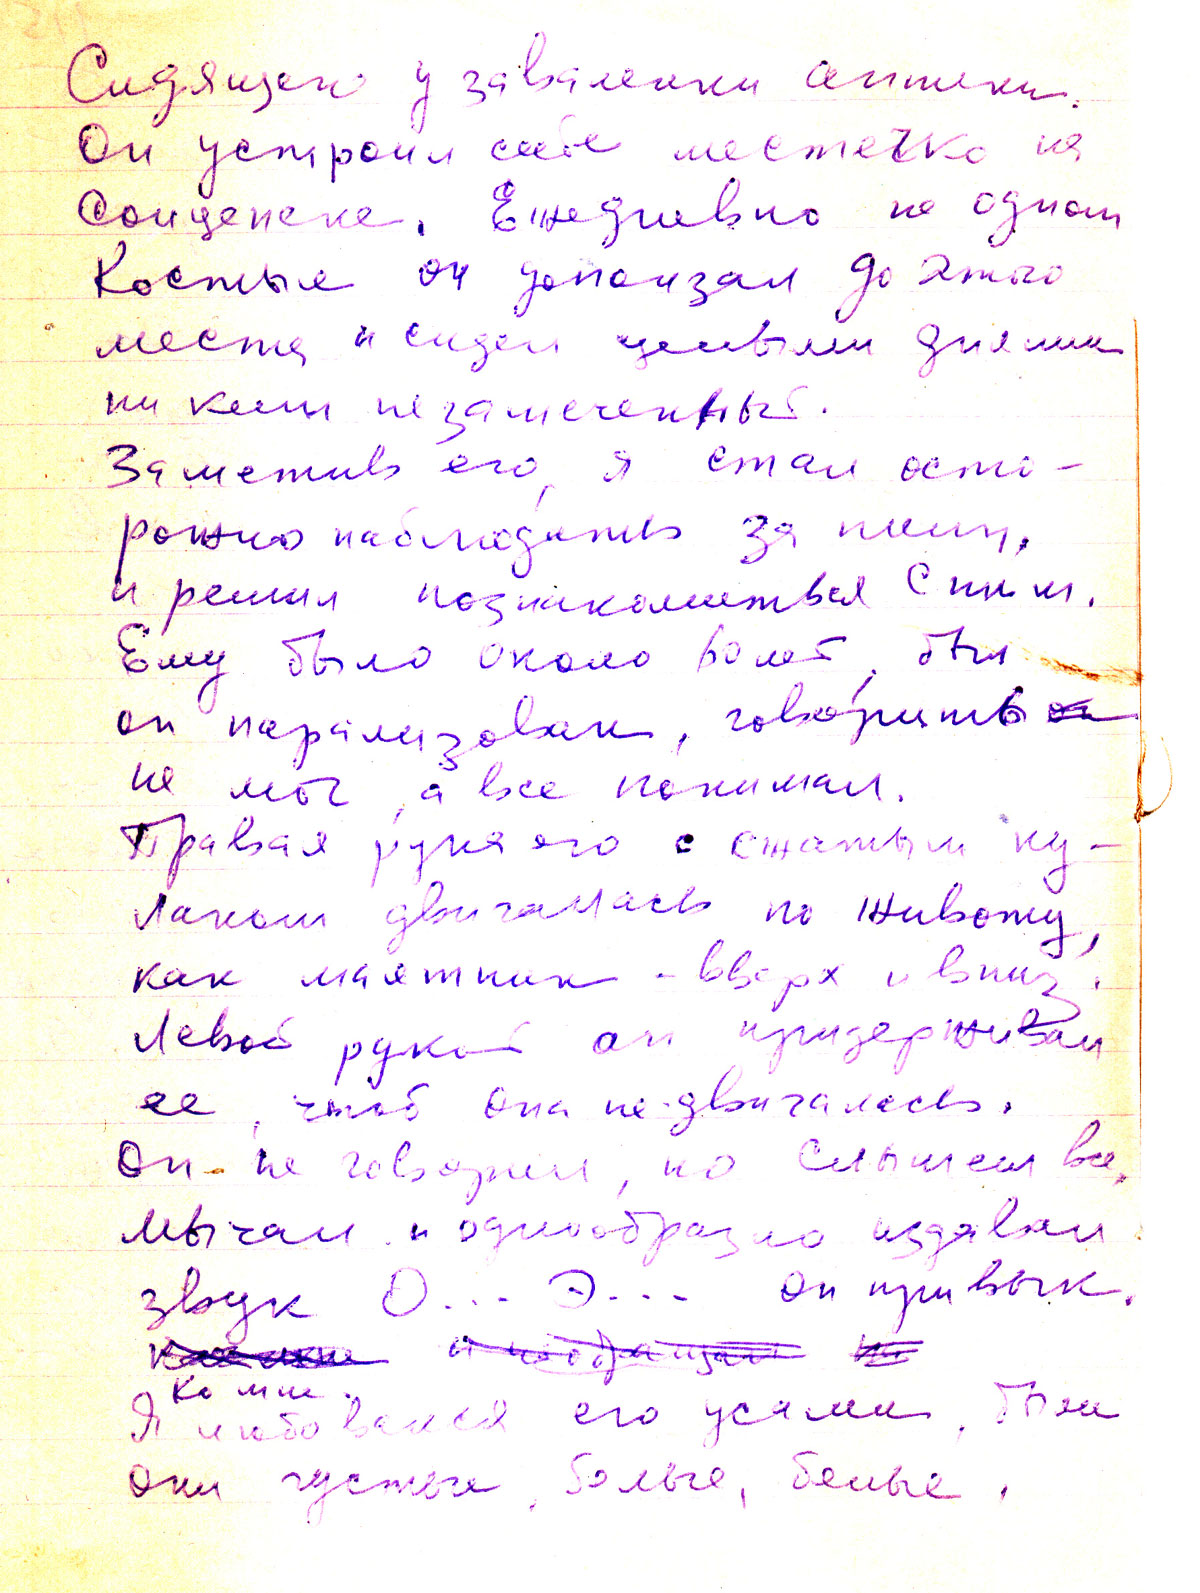 Сидящего у заваленки аптеки.
Он устроил себе местечко на
солнцепеке. Ежедневно на одном
костыле он доползал до этого
места и сидел целыми днями
ни кем незамеченный.
Заметив его, я стал осто-
рожно наблюдать за ним,
и решил познакомиться с ним.
Ему было около 60 лет, был
он парализован, говорить
не мог, а все понимал.
Правая рука его с сжатым ку-
лаком двигалась по животу,
как маятник - вверх и вниз.
Левой рукой он придерживал
ее, чтоб она не двигалась.
Он не говорил, но слышал все,
мычал и однообразно издавал
звук О... Э... Он привык
ко мне.
Я любовался его усами, были
они густые, белые.